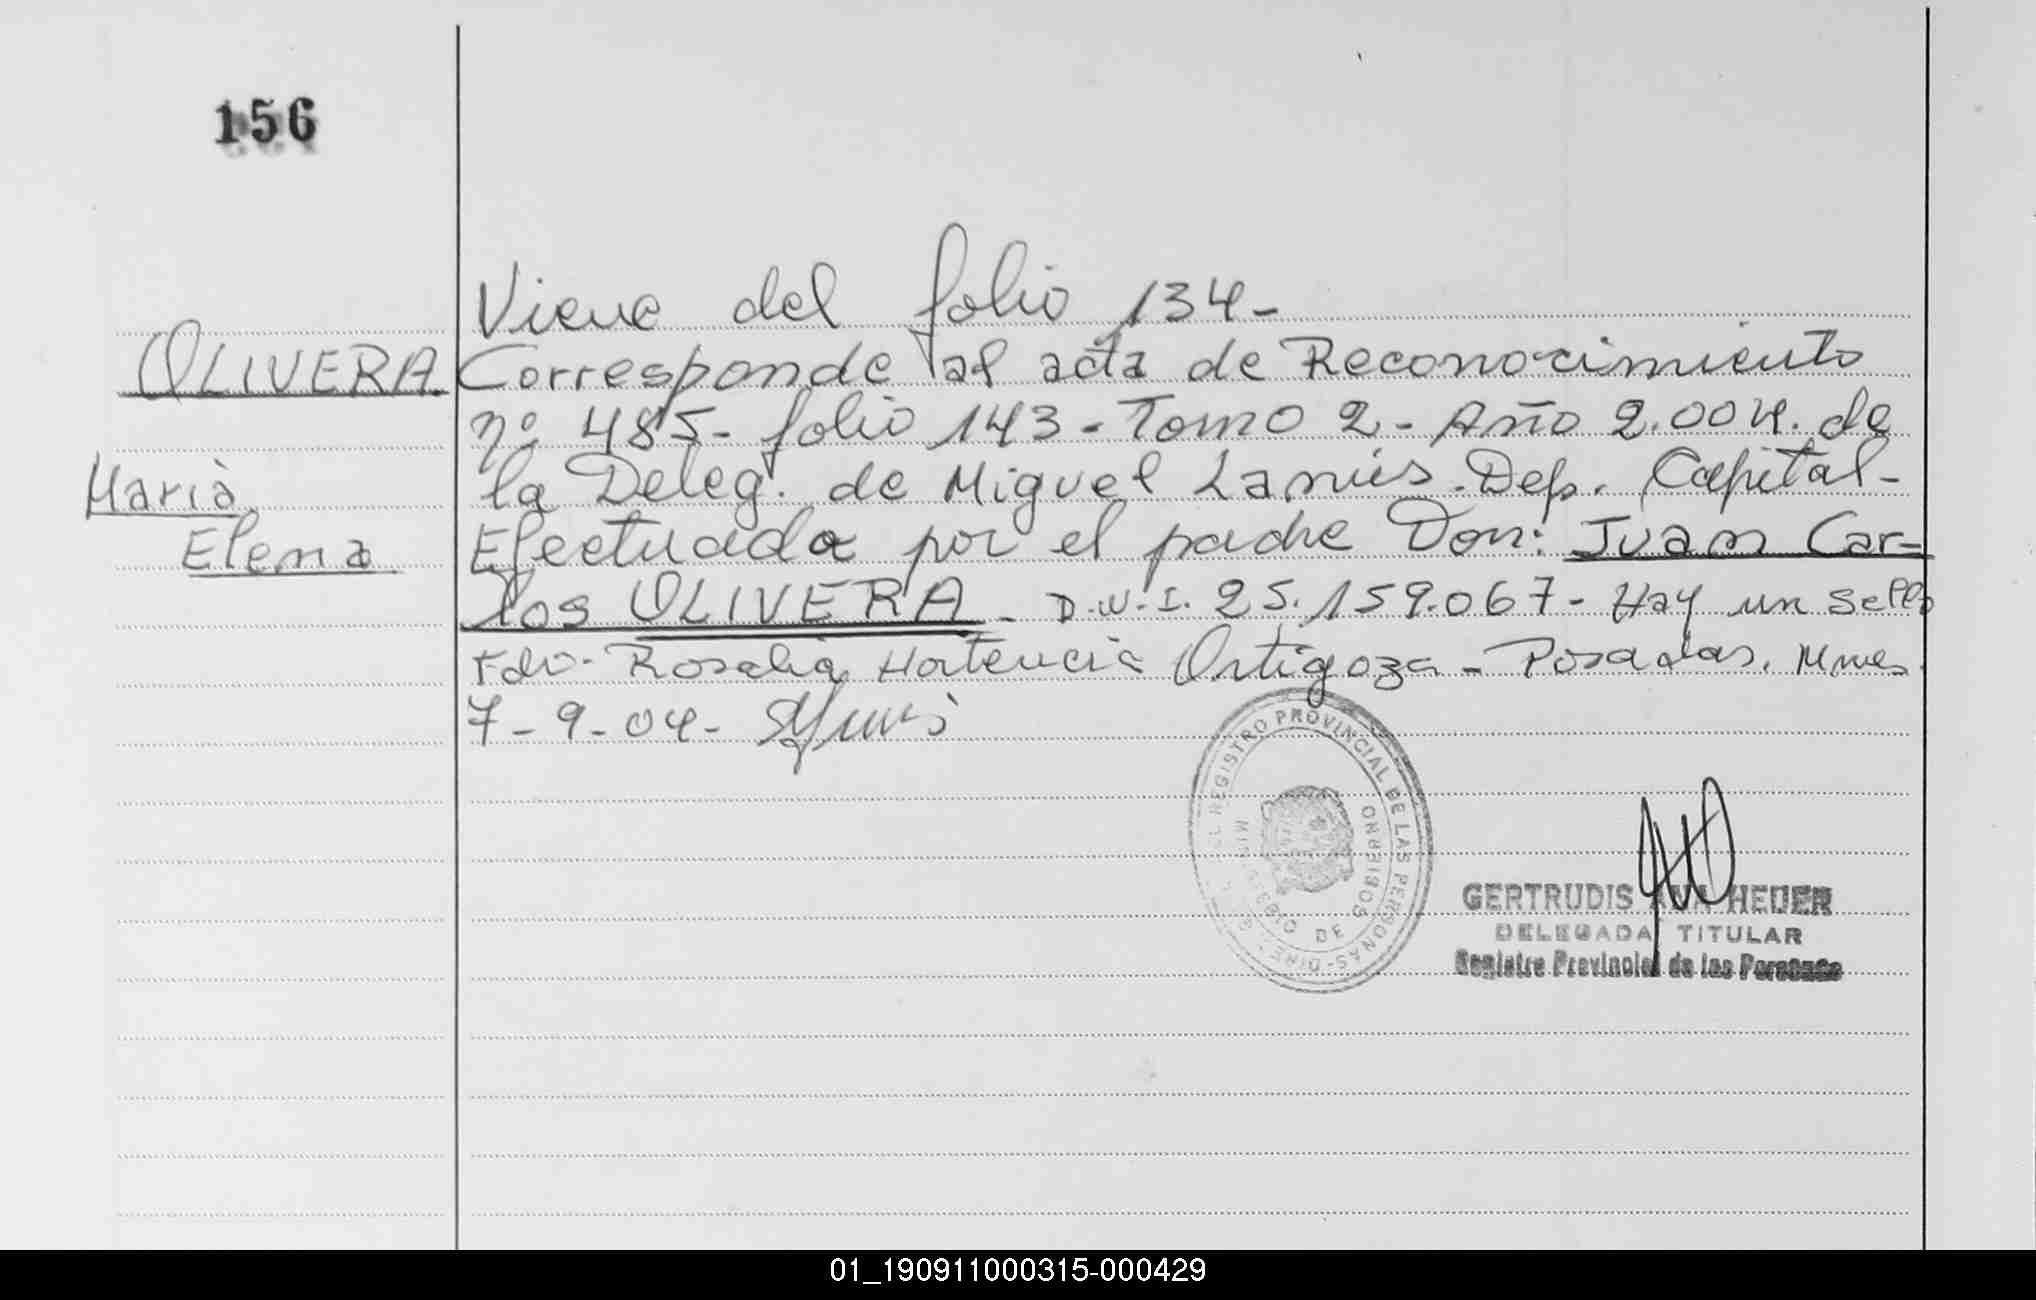 156
Viene del folio 134-
OLIVERA Corresponde al acta de Reconocimiento
nº 485- folio 143- Tomo 2- Año 2.004. de
María la Deleg. de Miguel Lanús. Dep. Capital-
Elena Efectuada por el padre Don: Juan Car-
los OLIVERA- D.N.I. 25.159.067- Hay un sello
Fdo- Rosalia Hortencia Ortigoza- Posadas. Mnes.
7-9-04-
REGISTRO PROVINCIAL DE LAS PERSONAS-DIRE
MINISTERIO DE GOBIERNO
GERTRUDIS ANA HEDER
DELEGADA TITULAR
Registro Provincial de las Personas
01_190911000315-000429